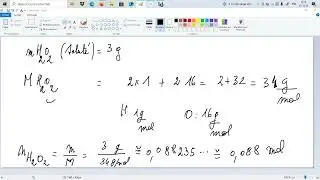 mH₂O₂ (soluté) = 3 g
MH₂O₂ = 2×1 + 2·16 = 2+32 = 34 g/mol
H 1g/mol O: 16g/mol
nH₂O₂ = m/M = 3 g / 34g/mol ≅ 0,088235... ≅ 0,088 mol